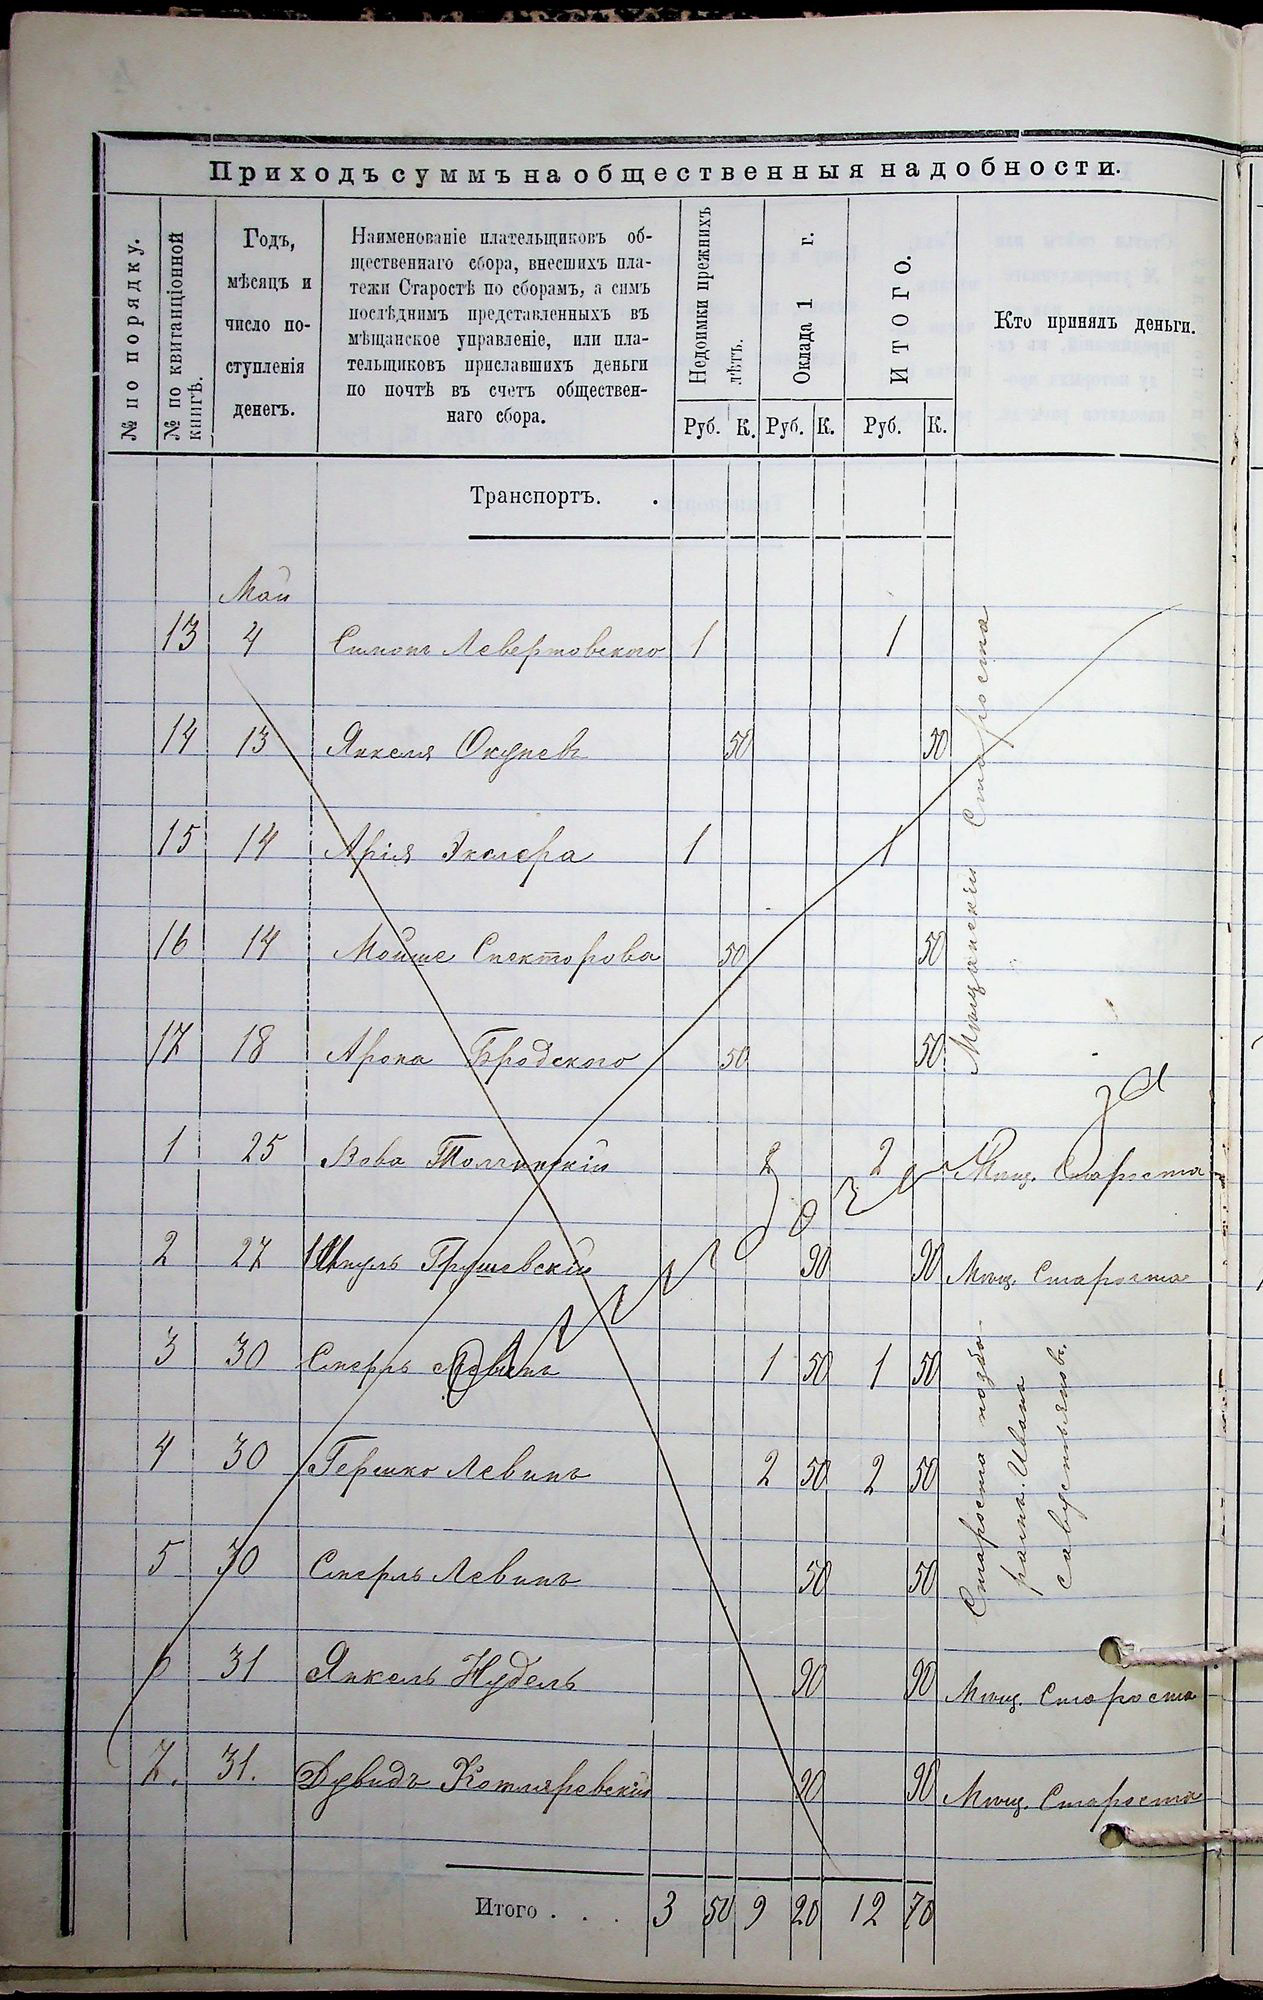 Приходъ суммъ на общественныя надобности.
№ по порядку.
№ по квитанціонной
книгѣ.
Годъ,
мѣсяцъ и
число по-
ступленія
денегъ.
Наименованіе плательщиковъ об-
щественнаго сбора, внесшихъ пла-
тежи Старостѣ по сборамъ, а симъ
послѣднимъ представленныхъ въ
мѣщанское управленіе, или пла-
тельщиковъ приславшихъ деньги
по почтѣ въ счетъ обществен-
наго сбора.
Недоимки прежнихъ
лѣтъ.
Оклада 1 г.
ИТОГО.
Кто принялъ деньги.
Руб. К. Руб. К. Руб. К.
Транспортъ. .
Май
13 4 Левертовского 1 1
14 13 Янкеля Окунев 50 50
15 14 Арія Эклера 1 1
16 14 Мойше Спекторова 50 50
17 18 Арона Бродского 50 50
Мѣщанскій Староста
за
1 25 Вова Толчинскій 2 2 Мѣщ. Староста
2 27 Шмуль Грушевскій 90 90 Мѣщ. Староста
3 30 Смерль Левинъ 1 50 1 50
4 30 Гершко Левинъ 2 50 2 50
5 30 Смерль Левинъ 50 50
Староста
Ивана
6 31 Янкель Нудель 90 90 Мѣщ. Староста
7. 31. Дувидъ Котляревскій 90 90 Мѣщ. Староста
Итого . . . 3 50 9 20 12 70